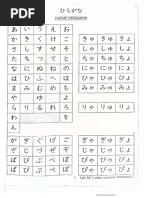 ひらがな
HURUF HIRAGANA
あ い う え お
か き く け こ きゃ きゅ きょ
さ し す せ そ しゃ しゅ しょ
た ち つ て と ちゃ ちゅ ちょ
な に ぬ ね の にゃ にゅ にょ
は ひ ふ へ ほ ひゃ ひゅ ひょ
ま み む め も みゃ みゅ みょ
や ゆ よ
ら り る れ ろ りゃ りゅ りょ
わ を
ん
が ぎ ぐ げ ご ぎゃ ぎゅ ぎょ
ざ じ ず ぜ ぞ じゃ じゅ じょ
だ ぢ づ で ど
ば び ぶ べ ぼ びゃ びゅ びょ
ぱ ぴ ぷ ぺ ぽ ぴゃ ぴゅ ぴょ